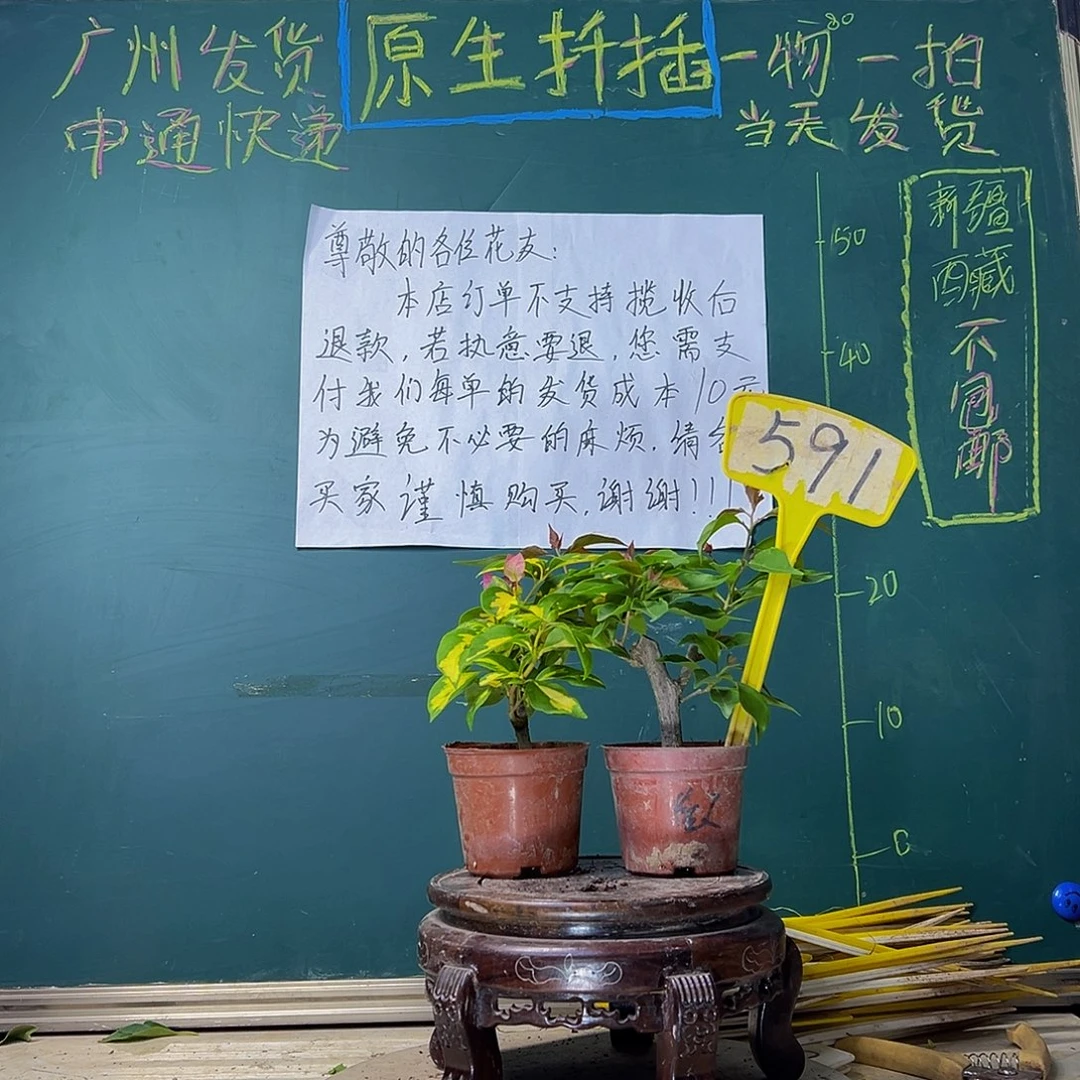 广州发货
申通快递
原生扦插
一物一拍
80
当天发货
尊敬的各位花友:
本店订单不支持揽收后
退款,若执意要退,您需支
付我们每单的发货成本10元
为避免不必要的麻烦.请各
买家谨慎购买,谢谢!!!
591
新疆
西藏
不
包
邮
50
40
20
10
0